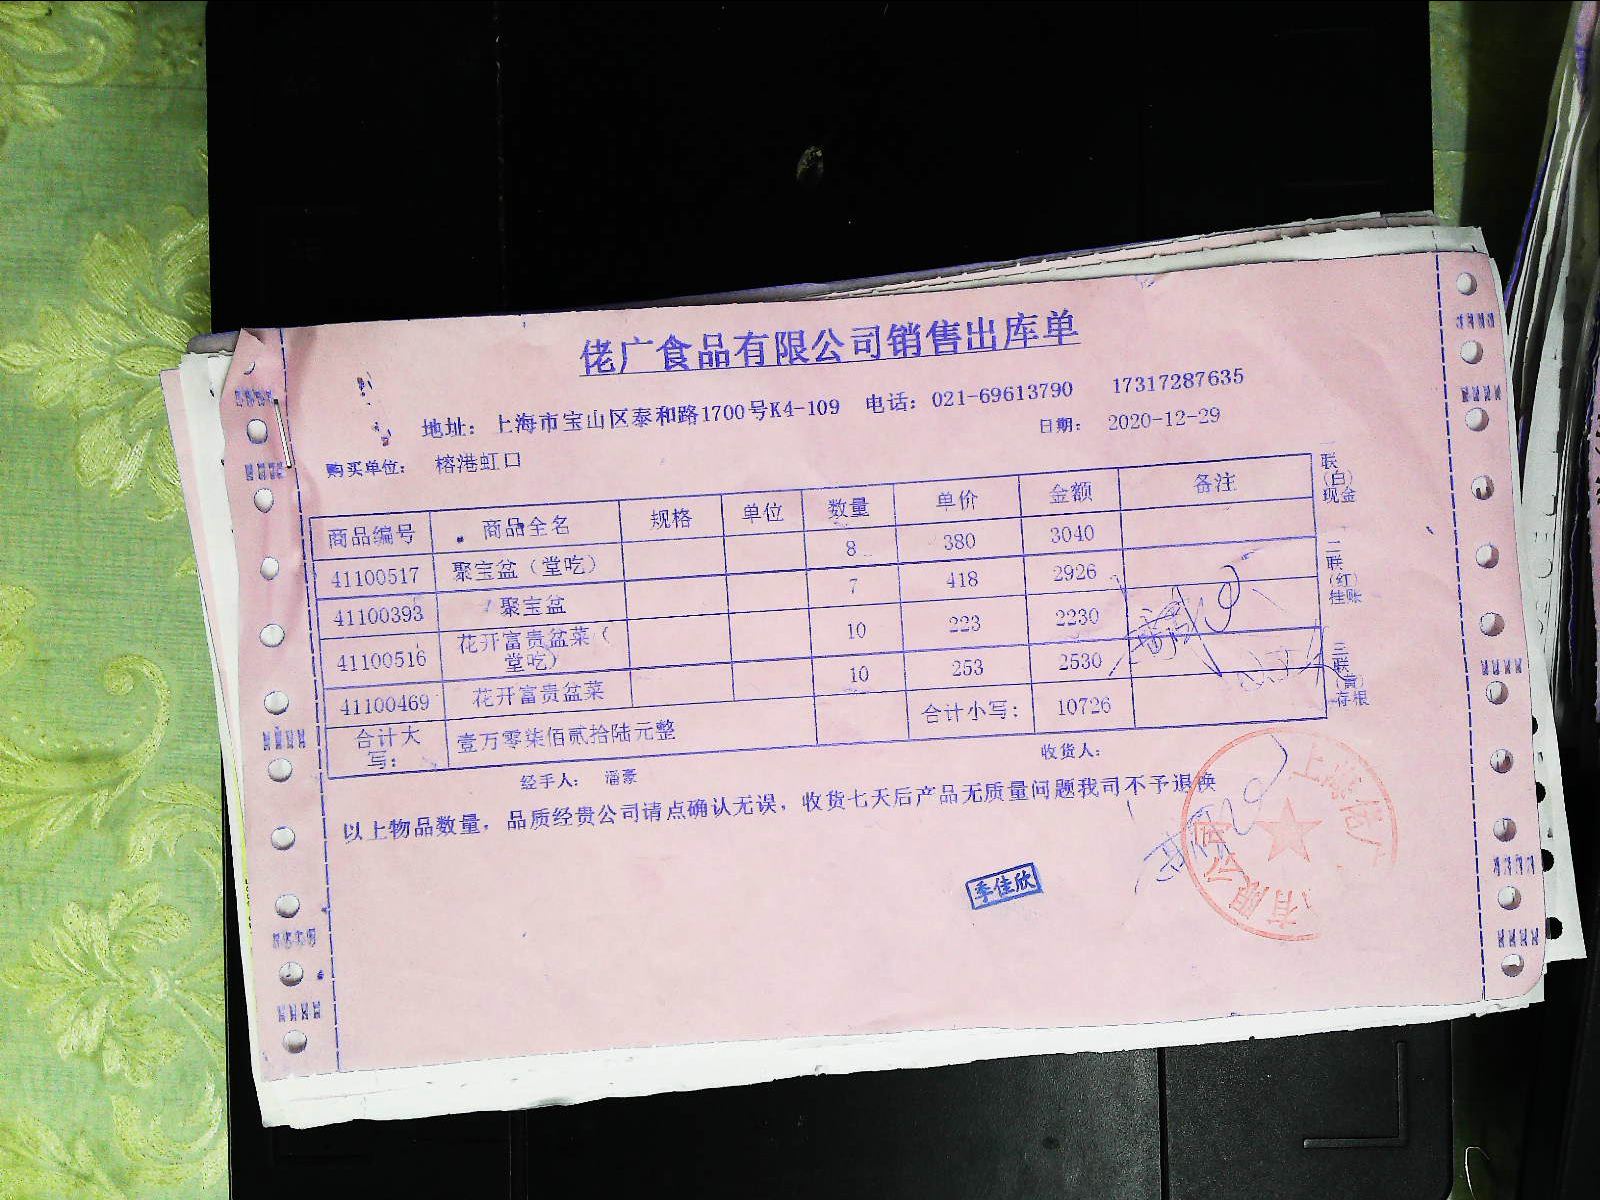 佬广食品有限公司销售出库单
地址： 上海市宝山区泰和路1700号K4-109 电话：021-69613790 17317287635
购买单位： 榕港虹口 日期： 2020-12-29
商品编号 商品全名 规格 单位 数量 单价 金额 备注
41100517 聚宝盆（堂吃） 8 380 3040
41100393 聚宝盆 7 418 2926
41100516 花开富贵盆菜（堂吃） 10 223 2230
41100469 花开富贵盆菜 10 253 2530
合计大写： 壹万零柒佰贰拾陆元整 合计小写： 10726
经手人： 潘豪 收货人：
以上物品数量，品质经贵公司请点确认无误，收货七天后产品无质量问题我司不予退换
一联（白）现金
二联（红）挂账
三联（黄）存根
季佳欣
上海佬广
有限公司